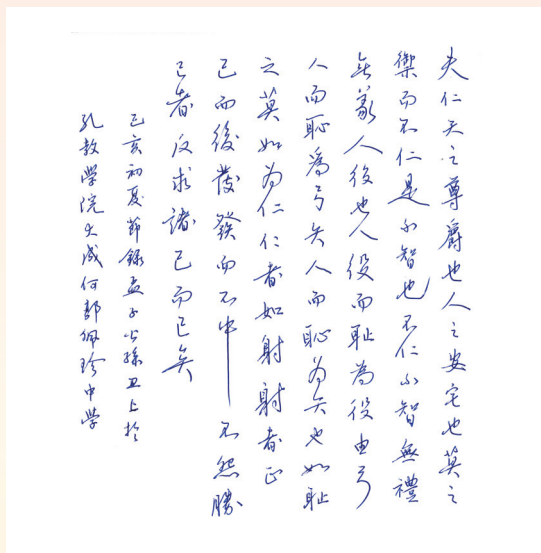 夫仁天之尊爵也人之安宅也莫之
禦而不仁是不智也不仁不智無禮
無義人役也人役而恥為役由弓
人而恥為弓矢人而恥為矢也如恥
之莫如為仁仁者如射射者正
己而後發發而不中不怨勝
己者反求諸己而已矣
己亥初夏節錄孟子公孫丑上於
孔教學院大成何郭佩珍中學